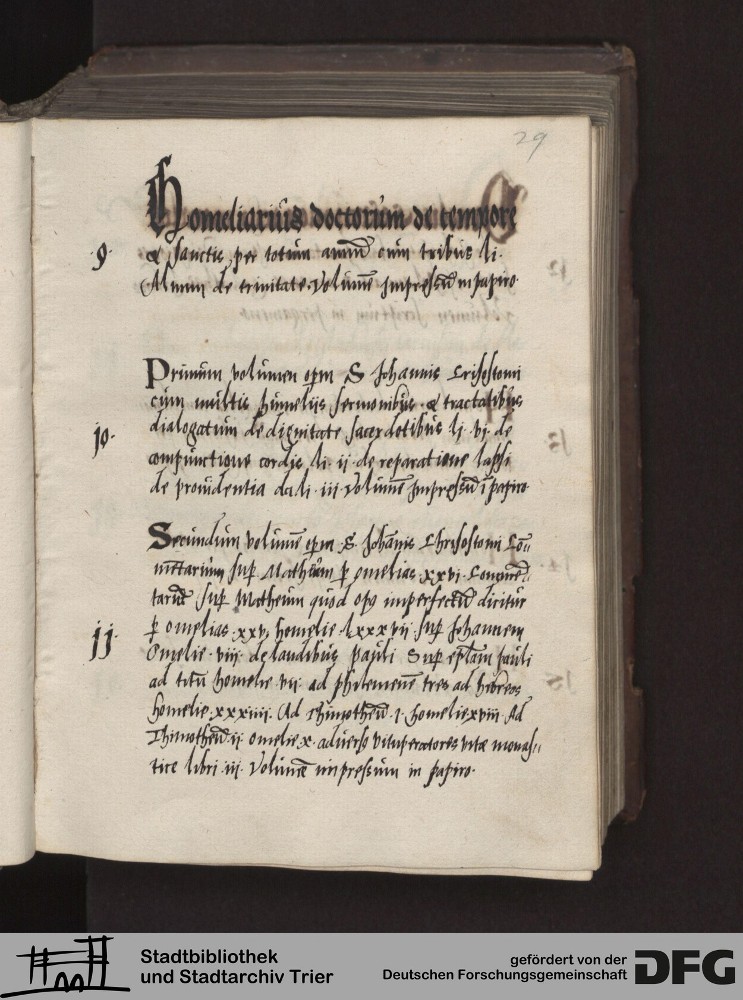 29
Homeliarius doctorum de tempore
9. & Sanctis per totum annū cum tribus li.
Almun de trinitate. Volumē Impressū in papiro.
Primum volumen opm S Johannis Crisostomi
cum multis humelijs sermonibus & tractatibus
10. dialogatum de dignitate sacerdotibus li. vi. de
compunctione cordis li. ii. de reparatione lapsi
de prouidentia dei li. iii Volumē Impressū ī papiro
Secundum volumē opm S. Johānis Chrisostomi Cō„
mittarium sup Matheum p omelias xxvi. Commē„
tariū sup Matheum quod opꝰ imperfectū dicitur
11. p omelias .xxv, homelie .lxxxvii sup Johannem
Omelie. viii. de laudibus pauli Sup eplam pauli
ad titū homelie vii. ad philemenē tres ad hebreos
homelie xxxiiii. Ad Thimotheū .i. homelie xviii Ad
Thimotheū ii omelie x. aduerso vituperatores vitæ monas„
tice libri .iii. Volumē impressum in papiro.
Stadtbibliothek
und Stadtarchiv Trier
gefördert von der
Deutschen Forschungsgemeinschaft
DFG